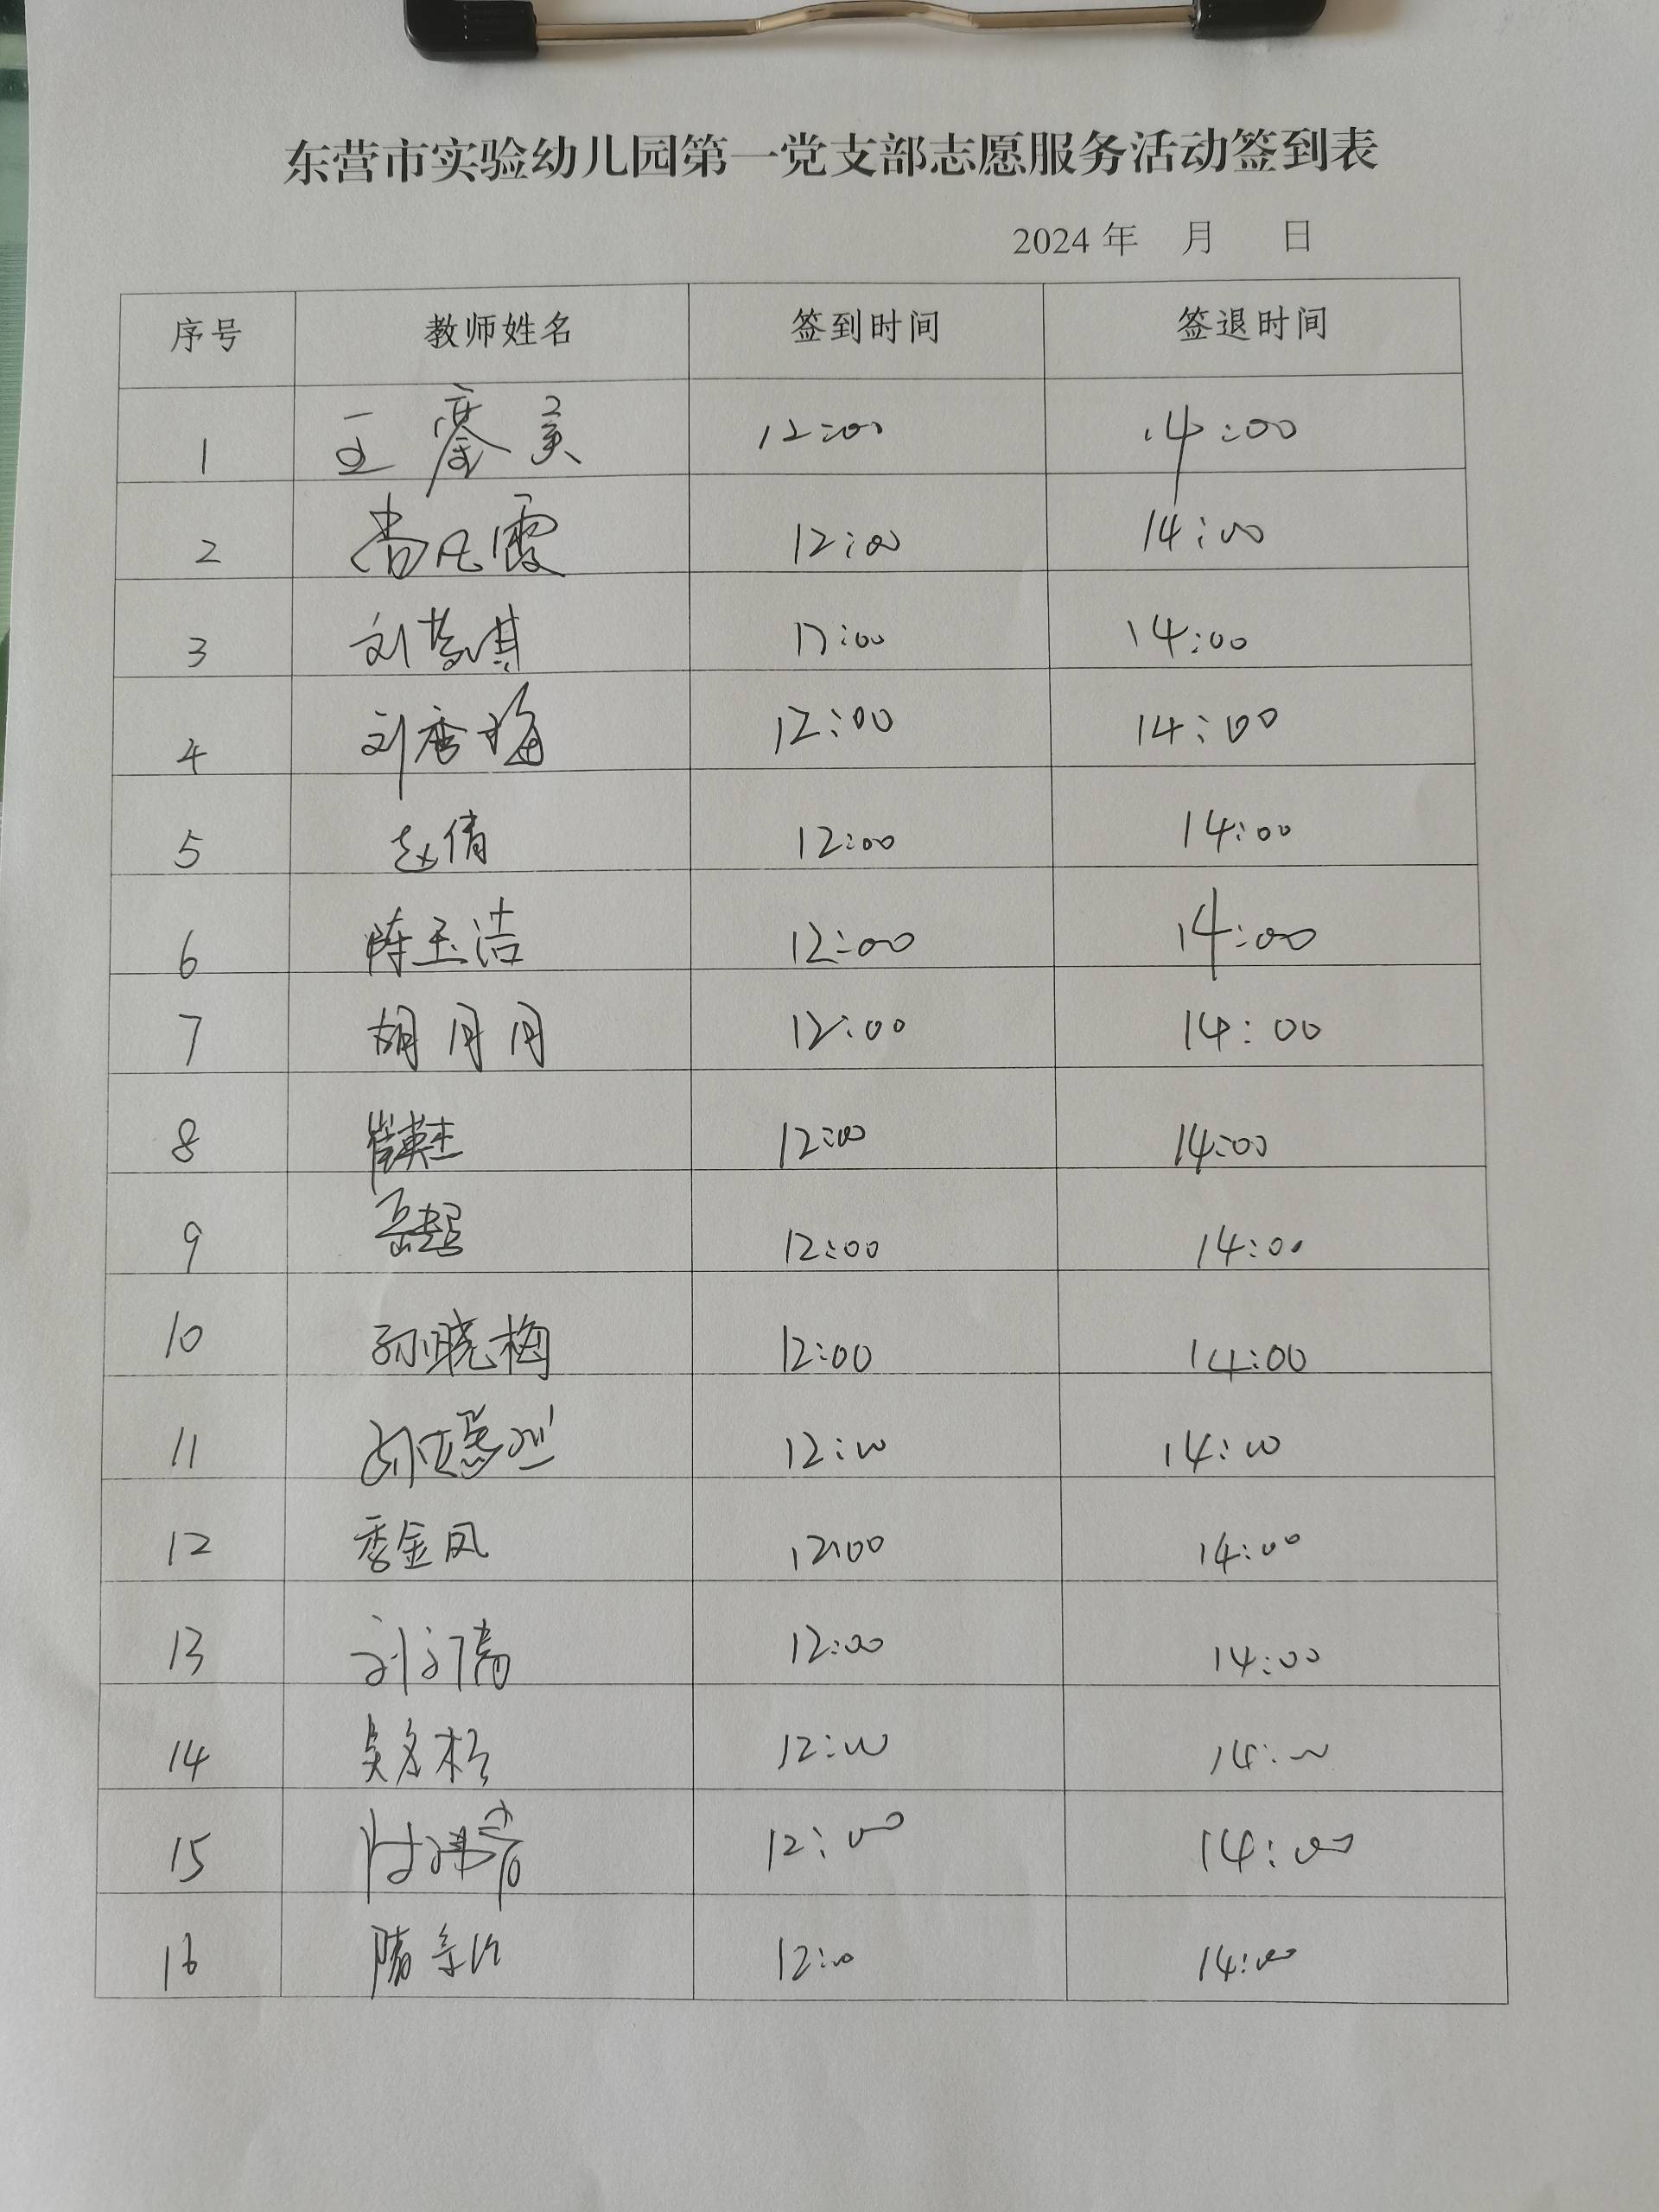 东营市实验幼儿园第一党支部志愿服务活动签到表
2024年 月 日
序号 教师姓名 签到时间 签退时间
1 王 美 12:00 14:00
2 尚凡霞 12:00 14:00
3 刘梦琪 12:00 14:00
4 刘秀梅 12:00 14:00
5 赵倩 12:00 14:00
6 陈玉洁 12:00 14:00
7 胡月月 12:00 14:00
8 崔英杰 12:00 14:00
9 岳超 12:00 14:00
10 孙晓梅 12:00 14:00
11 12:00 14:00
12 季金凤 12:00 14:00
13 刘 12:00 14:00
14 吴 12:00 14:00
15 12:00 14:00
16 隋 12:00 14:00